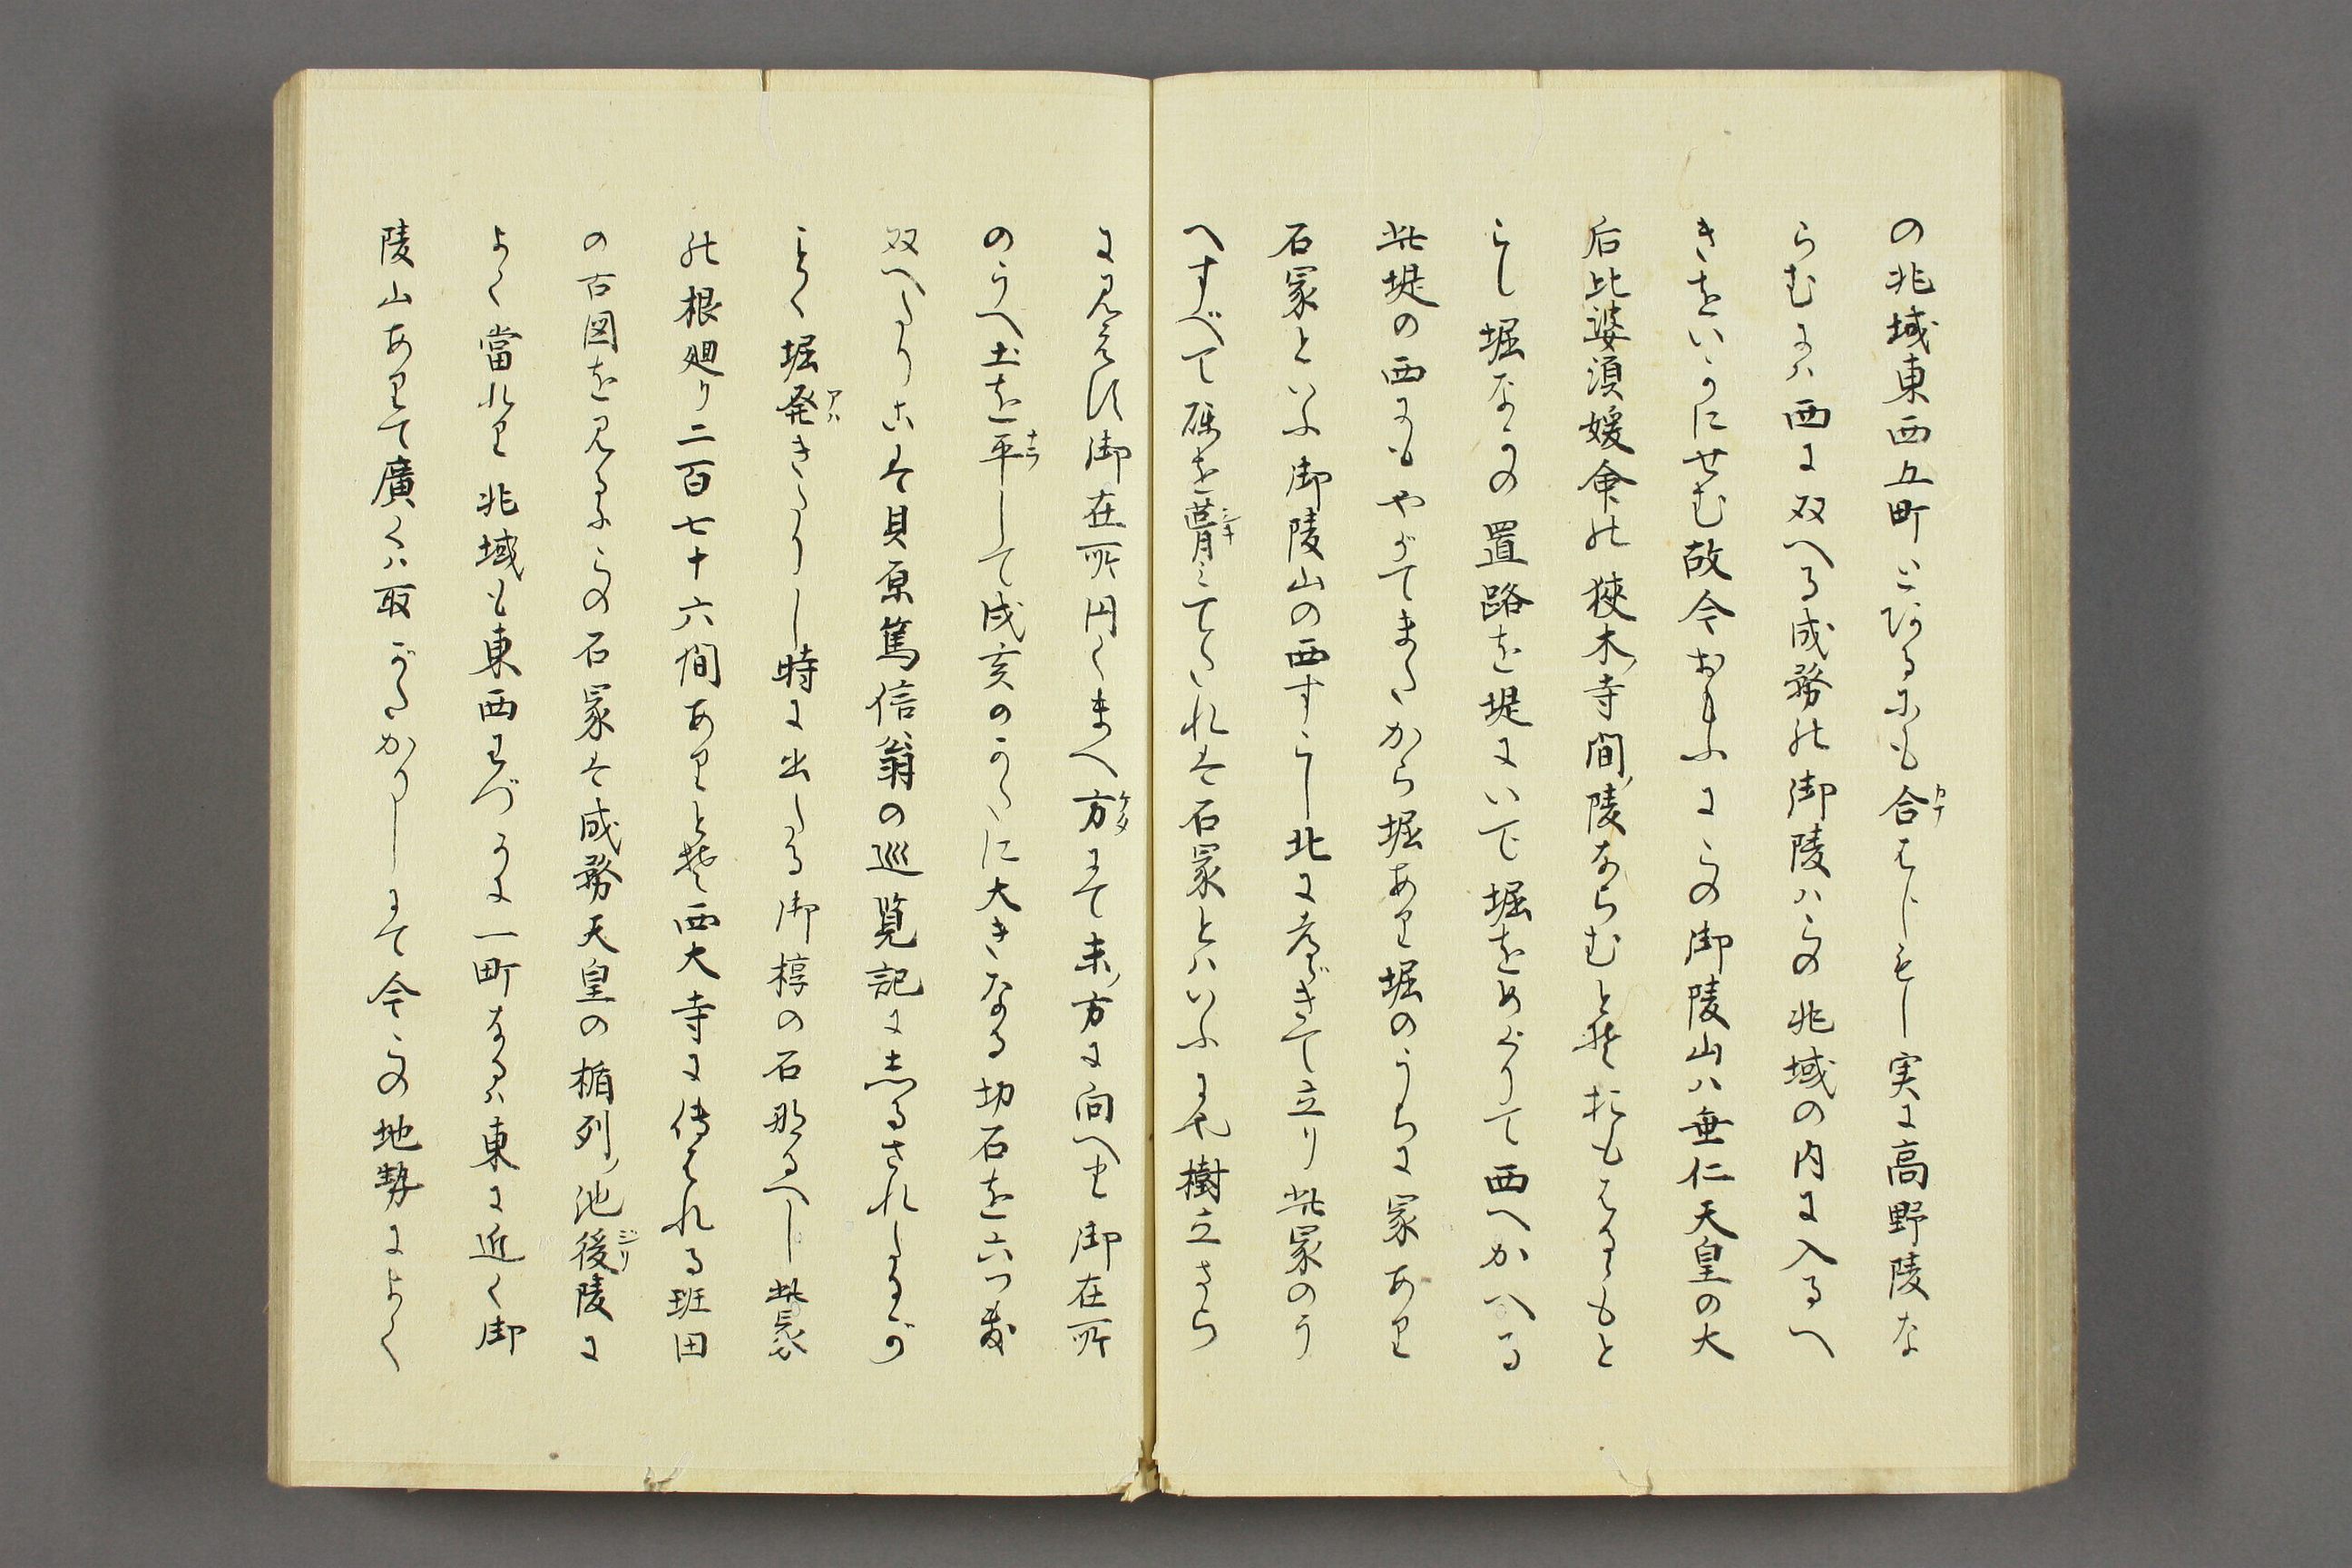 の兆域東西五町とあるにも合はじもし実に高野陵な
らむには西に双へる成務の御陵ハこの兆域の内に入るへ
きをいかにせむ故今おもふにこの御陵山ハ垂仁天皇の大
后比婆須媛命の狭木ノ寺間ノ陵ならむとぞおもはるゝもと
らし堀なかの置路を堤にいで堀をめぐりて西へかへる
此堤の西にもやがてまたから堀あり堀のうちに冢あり
石冢といふ御陵山の西すこし北になびきて立り此冢のう
へすべて礫を葺ミてたれは石冢とハいふにや樹立さら
に見えす御在所円くまへ方にて未ノ方に向へり御在所
のうへ土を平して戌亥のかたに大きなる切石を六つ教
双へたりこは貝原篤信翁の巡覧記にしるされしるが
ことく堀発きたりし時に出したる御椁の石なるへし此冢
の根廻り二百七十六間ありとぞ西大寺に傳はれる班田
の古図を見るにこの石冢は成務天皇の楯列ノ池後陵に
よく當れり兆域も東西わづかに一町なるハ東に近く御
陵山ありて廣くハ取がたかりしにて今この地勢によく